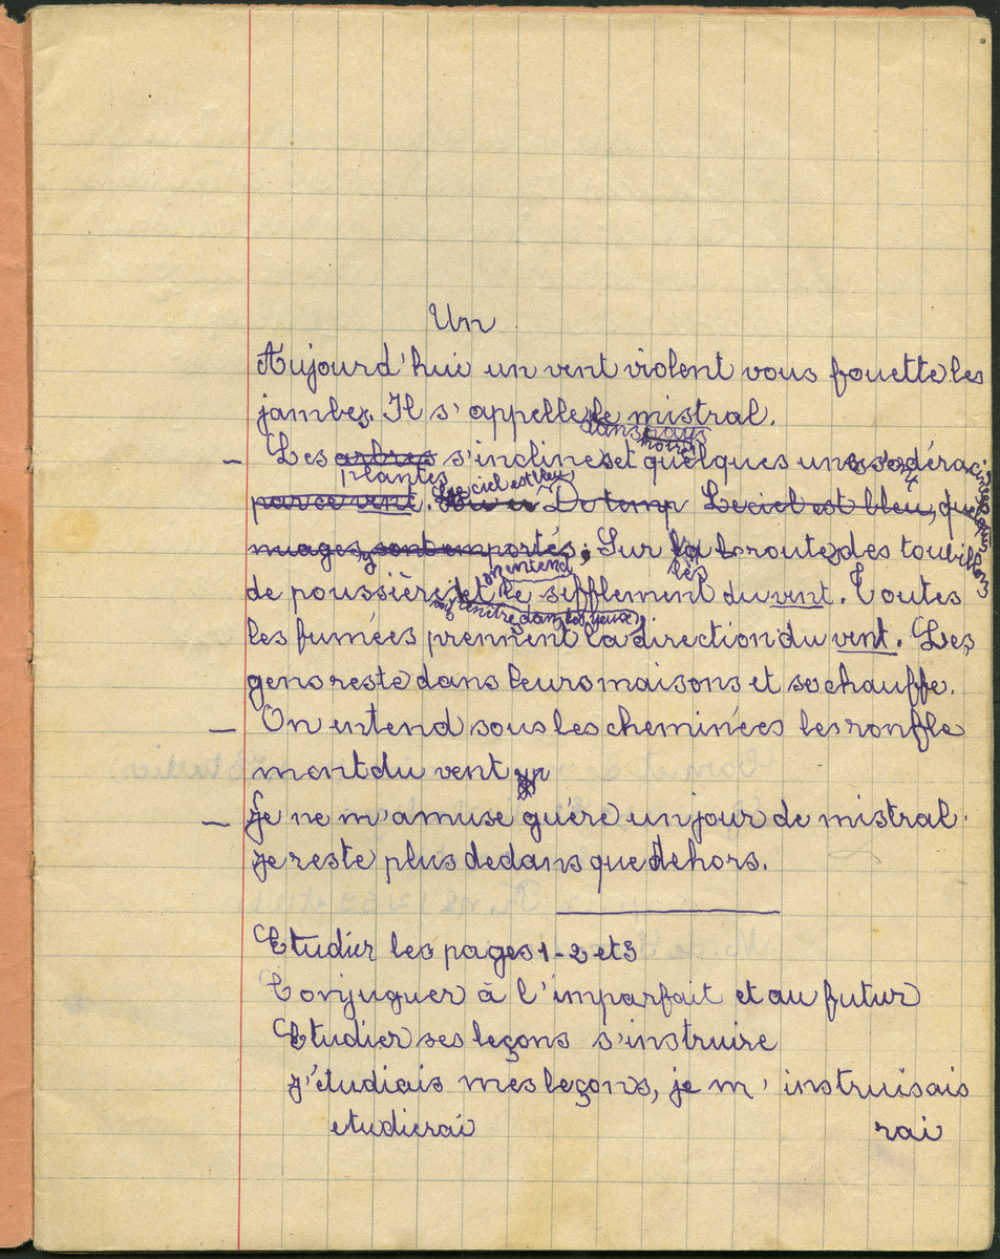 Un
Aujourd'hui un vent violent vous fouette les
jambes. Il s'appelle le mistral.
dans nos pays
– Les arbres s'incline et quelques uns s'on déraci
plantes
par ce vent. Le ciel est bleu De temp Le ciel est bleu, quelques
nuages, sont emportés; Sur les routes des toubillons
on entend
de poussière et le sifflement du vent. Toutes
rentre dans les yeux
les fumées prennent la direction du vent. Les
gens reste dans leurs maisons et se chauffe.
– On entend sous les cheminées les ronfle
ment du vent
– Je ne m'amuse guère un jour de mistral.
je reste plus dedans que dehors.
Etudier les pages 1-2 et 3
Conjuguer à l'imparfait et au futur
Etudier ses leçons s'instruire
j'étudiais mes leçons, je m'instruisais
etudierai rai